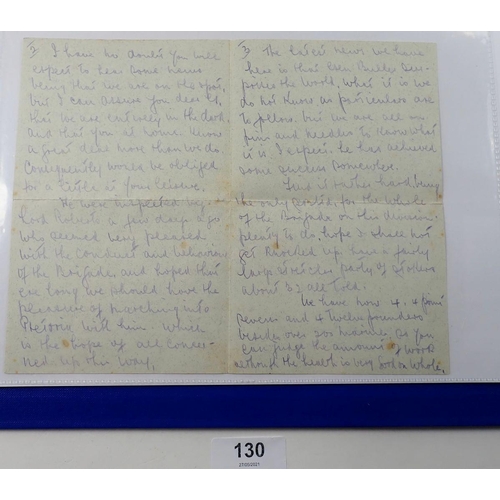 2 I have no doubt you will
expect to hear some news
being that we are on the spot,
but I can assure you dear
that we are entirely in the dark
and that you at home know
a great deal more than we do.
Consequently would be obliged
for a little at your leisure.
We were inspected by
Lord Roberts a few days ago
who seemed very pleased
with the conduct and behaviour
of the Brigade, and hoped that
ere long we should have the
pleasure of marching into
Pretoria with him. Which
is the hope of all concer-
ned up this way.
3 The latest news we have
here is that Gen Buller
the World. What it is we
do not know as particulars are
to follow, but we are all on
pins and needles to know what
it is. I expect he has achieved
some success somewhere.
This is rather hard being
the only for the whole
of the Brigade on this division
plenty to do. hope I shall not
get knocked up. have a fairly
large party of
about 32 all told.
We have now 4. 4
and 4 Twelve pounders
besides over 200 marines, so you
can judge the amount of work
although the health is very good on whole.
130
27/05/2021